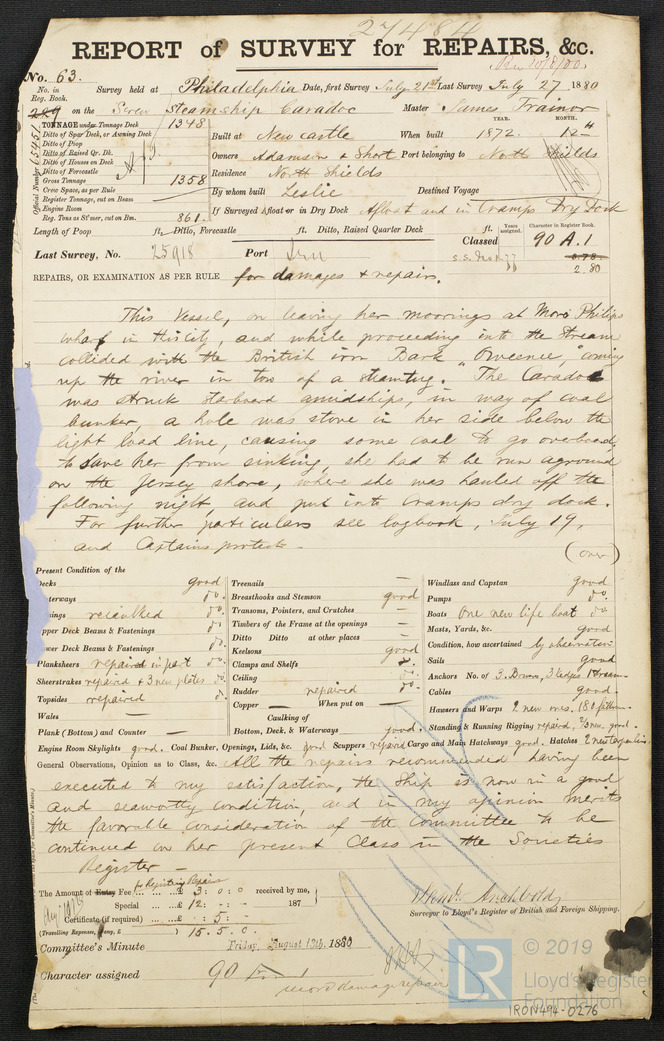 27484
REPORT of SURVEY for REPAIRS, &c.
No. 63.
No. in Reg. Book.
Survey held at Philadelphia Date, first Survey July 21st Last Survey July 27 1880
on the Screw Steamship Caradoc Master James Trainor
TONNAGE under Tonnage Deck 1348
Ditto of Spar Deck, or Awning Deck
Ditto of Poop
Ditto of Raised Qr. Dk.
Ditto of Houses on Deck
Ditto of Forecastle
Gross Tonnage 1358
Crew Space, as per Rule
Register Tonnage, cut on Beam
Engine Room
Reg. Tons as St'mer, cut on Bm. 861.
Official Number
YEAR. MONTH.
Built at Newcastle When built 1872. 12
Owners Adamson & Short Port belonging to North Shields
Residence North Shields
By whom built Leslie Destined Voyage
If Surveyed Afloat or in Dry Dock Afloat and in Cramps Dry Dock
Length of Poop ft. Ditto, Forecastle ft. Ditto, Raised Quarter Deck ft.
Years assigned. Character in Register Book.
Classed 90 A.1
Last Survey, No. 25918 Port
2.80
REPAIRS, OR EXAMINATION AS PER RULE for damages & repairs.
This Vessel, on leaving her moorings at Moro Philips
wharf in this city, and while proceeding into the stream
collided with the British iron Bark "Oweenee," coming
up the river in tow of a steamtug. The Caradoc
was struck starboard amidships, in way of coal
bunker, a hole was stove in her side below the
light load line, causing some coal to go overboard,
to save her from sinking, she had to be run aground
on the Jersey shore, where she was hauled off the
following night, and put into Cramps dry dock.
For further particulars see logbook, July 19,
and Captains protest.
(over)
Present Condition of the
Decks good
Waterways do.
recaulked do.
Upper Deck Beams & Fastenings do.
Lower Deck Beams & Fastenings do.
Planksheers repaired in part do.
Sheerstrakes repaired & 3 new plates do.
Topsides repaired do.
Wales —
Plank (Bottom) and Counter —
Treenails —
Breasthooks and Stemson good
Transoms, Pointers, and Crutches —
Timbers of the Frame at the openings —
Ditto Ditto at other places —
Keelsons good
Clamps and Shelfs do.
Ceiling do.
Rudder repaired do.
Copper — When put on —
Caulking of
Bottom, Deck, & Waterways good.
Windlass and Capstan good
Pumps do.
Boats One new life boat do
Masts, Yards, &c. good
Condition, how ascertained by observation
Sails good
Anchors No. of 3 Bower, 3 kedges, 1 Stream
Cables good.
Hawsers and Warps 2 new ones. 180 fathom
Standing & Running Rigging repaired, good.
Engine Room Skylights good. Coal Bunker, Openings, Lids, &c. good Scuppers repaired Cargo and Main Hatchways good. Hatches 2 new tarpaulins.
General Observations, Opinion as to Class, &c. All the repairs recommended having been
executed to my satisfaction, the Ship is now in a good
and seaworthy condition, and in my opinion merits
the favorable consideration of the Committee to be
continued in her present Class in the Societies
Register —
for Registering Repairs
The Amount of Entry Fee ... £ 3 : 0 : 0 received by me,
Special ... £ 12 : - : - 187
Certificate (if required) ... £ - : 5 : -
(Travelling Expenses, if any, £ ) 15. 5. 0.
Surveyor to Lloyd's Register of British and Foreign Shipping.
Committee's Minute Friday, August 13th, 1880
Character assigned 90
record damage repairs
LR
© 2019
Lloyd's Register
Foundation
IRON494-0276